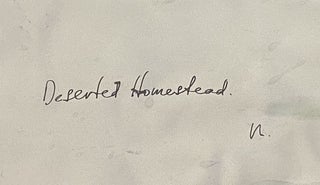 Deserted Homestead.
n.